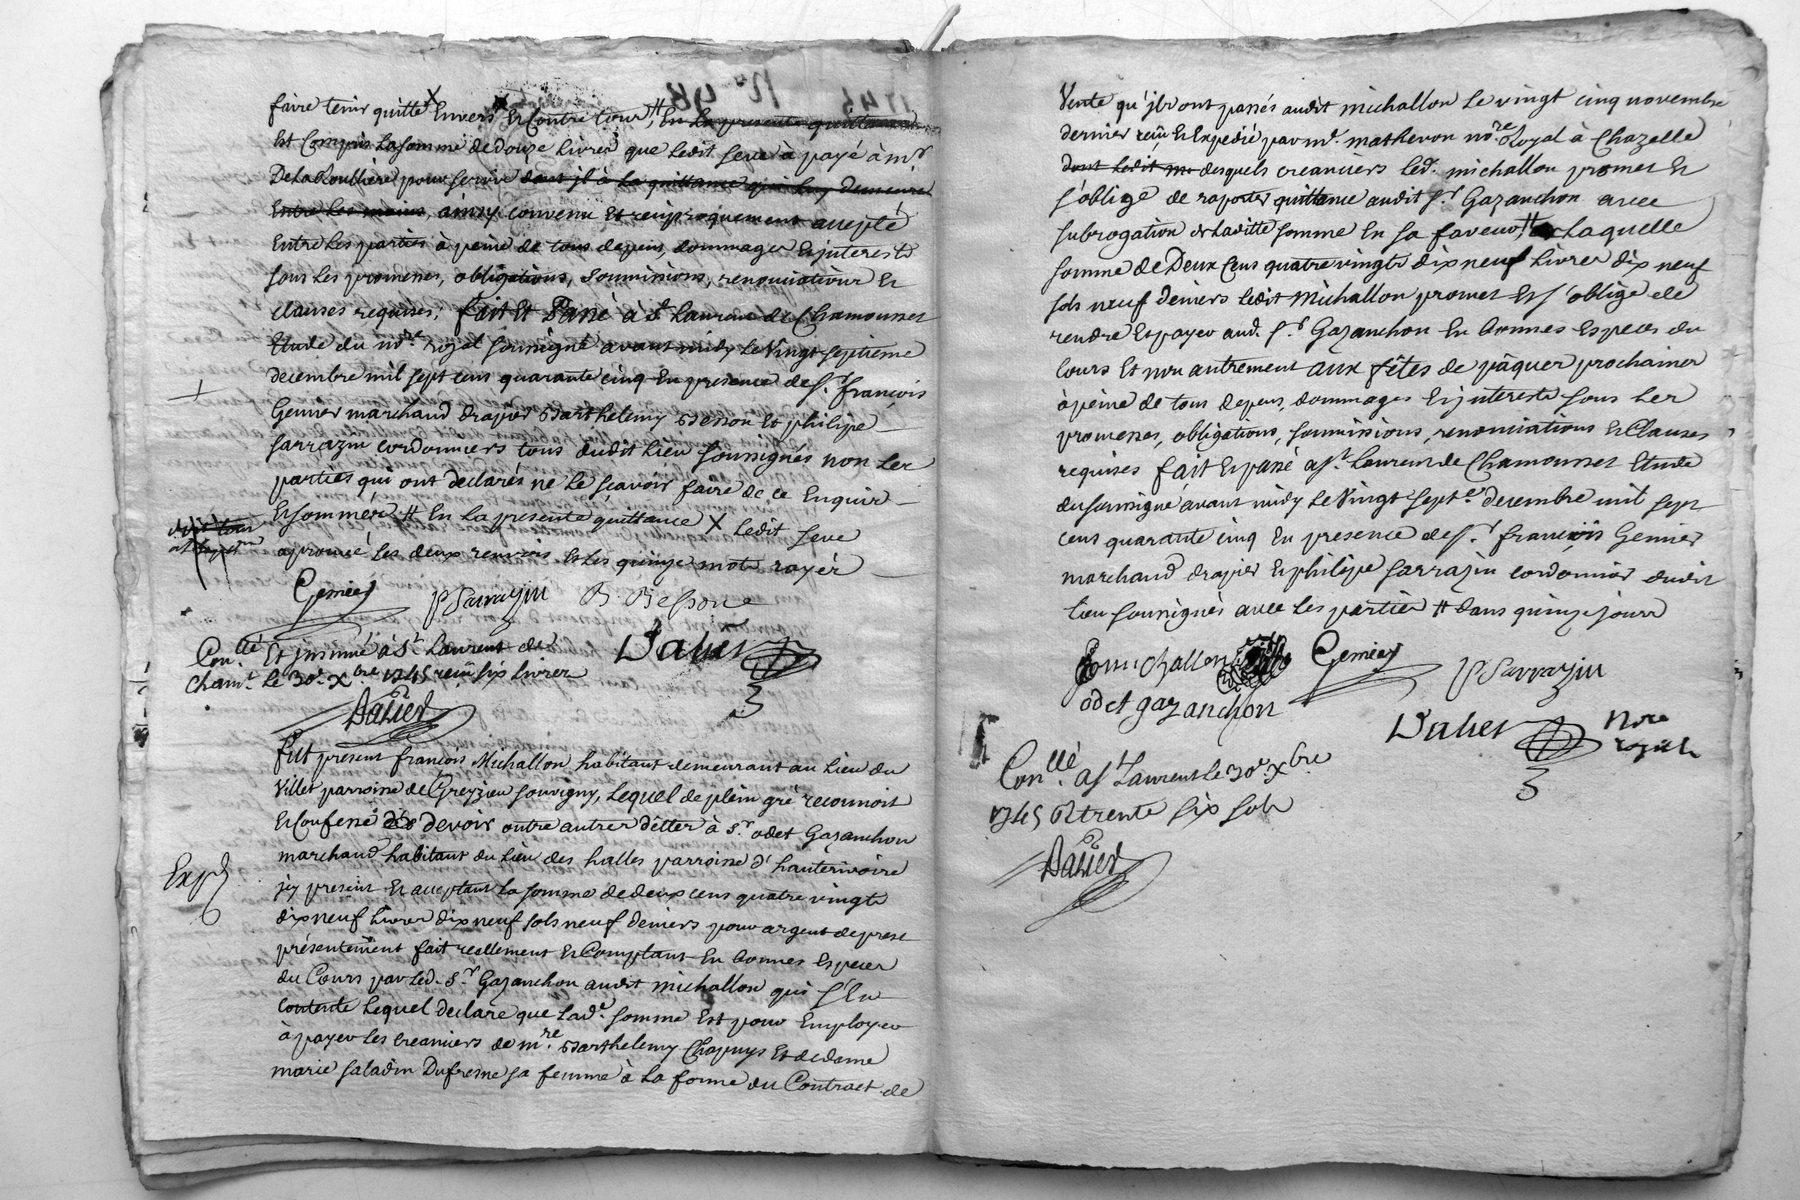 faire tenir quitte X Envers Et Contre tous, # En la presente quittance
Est Compris la somme de douze livres que ledit seve à payé à mr
De la Roullière pour servis dont jl à la quittance qui luy demeure
Entre les mains, ainsy convenu Et reciproquement accepté
Entre les parties à peine de tous depens, dommages Et jnterests
sous les promesses, obligations, soumissions, renonciations Et
clauses requises; fait Et Passé à St Laurent de Chamousset
Etude du nore royal soussigné avant midy le Vingt septieme
decembre mil sept cens quarante cinq En presence de Sr françois
Genier marchand drapier Barthelemy Besson Et philipe
sarrazin cordonniers tous dudit lieu soussignés non les
parties qui ont declarés ne le sçavoir faire de ce Enquis
Et sommés # En la presente quittance X ledit seve
aprouvé les deux renvois Et les quinze mots rayés
Genier P Sarrazin B. Besson
Conllé Et jnsinué à St Laurent de
Chamt le 30e Xbre 1745 reçu six livres
Dalier
Dalier
Fut present françois Michallon habitant demeurant au lieu du
Villet parroisse de Greyzieu souvigny, lequel de plein gré reconnoit
Et Confesse devoir outre autres dettes à Sr odet Gazanchon
marchand habitant du lieu des halles parroisse d'hauterivoire
jcy present Et acceptant la somme de deux cens quatre vingts
dix neuf livres dix neuf sols neuf deniers pour argent de prest
présentement fait reellement Et Comptant En bonnes Especes
du Cours par led. Sr Gazanchon audit michallon qui s'En
contente lequel declare que lade somme Est pour Employer
à payer les creanciers de mre Barthelemy Chapuys Et de dame
marie saladin Dufresne sa femme à la forme du Contract de
Expé
Vente qu'jls ont passés audit michallon le vingt cinq novembre
dernier reçu Et Expedié par mr. mathevon nore Royal à Chazelle
dont ledit mi desquels creanciers led. michallon promet Et
s'oblige de raporter quittance audit Sr Gazanchon avec
subrogation de laditte somme En sa faveur, # laquelle
somme de Deux Cens quatre vingts dix neuf livres dix neuf
sols neuf deniers ledit Michallon promet Et s'oblige de
rendre Et payer aud. Sr Gazanchon En bonnes Especes du
cours Et non autrement aux fêtes de pâques prochaines
à peine de tous depens, dommages Et jnterests sous les
promesses, obligations, soumissions, renonciations Et Clauses
requises fait Et passé a St Laurent de Chamousset Etude
du soussigné avant midy le Vingt septe decembre mil sept
cens quarante cinq En presence de Sr françois Genier
marchand drapier Et philipe sarrazin cordonnier dudit
lieu soussignés avec les parties # dans quinze jours
michallon Genier P Sarrazin
odet gazanchon
Dalier Nore
royal
Conllé a St Laurent le 30e Xbre
1745 R trente six sols
Dalier